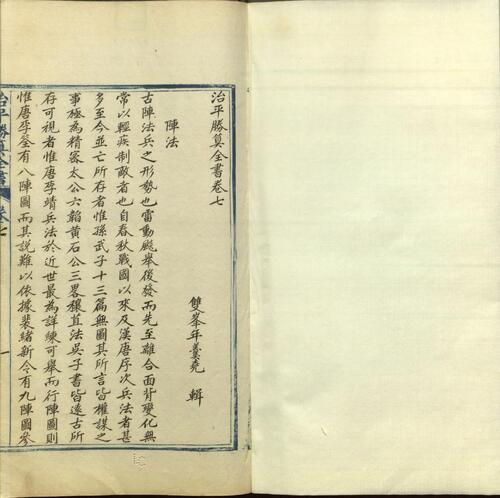 治平勝算全書卷七
雙峯年羹堯 輯
陣法
古陣法兵之形勢也雷動飈舉後發而先至離合面背變化無
常以輕疾制敵者也自春秋戰國以來及漢唐序次兵法者甚
多至今並亡所存者惟孫武子十三篇無圖其所言皆權謀之
事極為精密太公六韜黃石公三畧穰苴法吳子書皆遠古所
存可視者惟唐李靖兵法於近世最為詳練可舉而行陣圖則
惟唐李筌有八陣圖而其說難以依據裴緒新令有九陣圖參
治平勝算全書 卷七 一